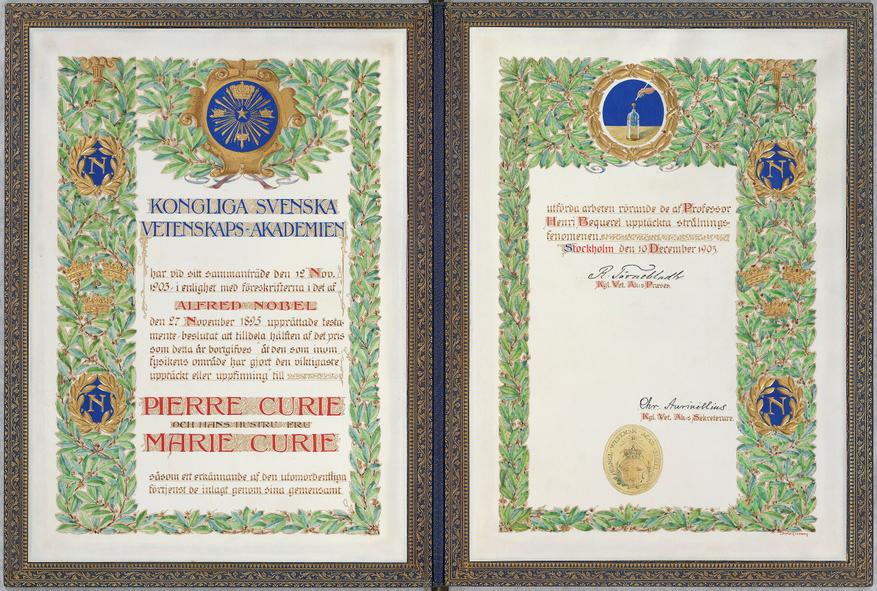 N
N
KONGLIGA SVENSKA
VETENSKAPS-AKADEMIEN
har vid sitt sammanträde den 12 Nov.
1903, i enlighet med föreskrifterna i det af
ALFRED NOBEL
den 27 November 1895 upprättade testa-
mente, beslutat att tilldela hälften af det pris
som detta år bortgifves "åt den som inom
fysikens område har gjort den viktigaste
upptäckt eller uppfinning" till
PIERRE CURIE
OCH HANS HUSTRU FRU
MARIE CURIE
såsom ett erkännande af den utomordentliga
förtjenst de inlagt genom sina gemensamt
utförda arbeten rörande de af Professor
Henri Bequerel upptäckta strålnings-
fenomenen
Stockholm den 10 December 1903.
R. Törnebladh
Kgl. Vet. Ak:s Præses.
Chr. Aurivillius
Kgl. Vet. Ak:s Sekreterare.
N
N